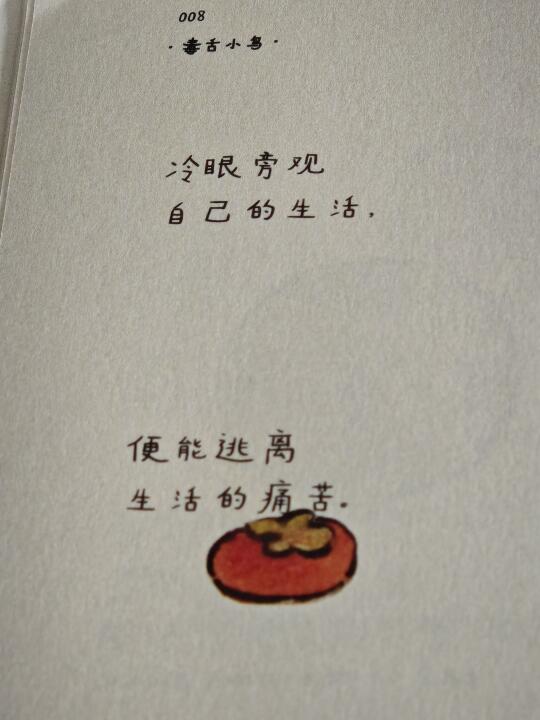 008
·毒舌小鸟·
冷眼旁观
自己的生活,
便能逃离
生活的痛苦.